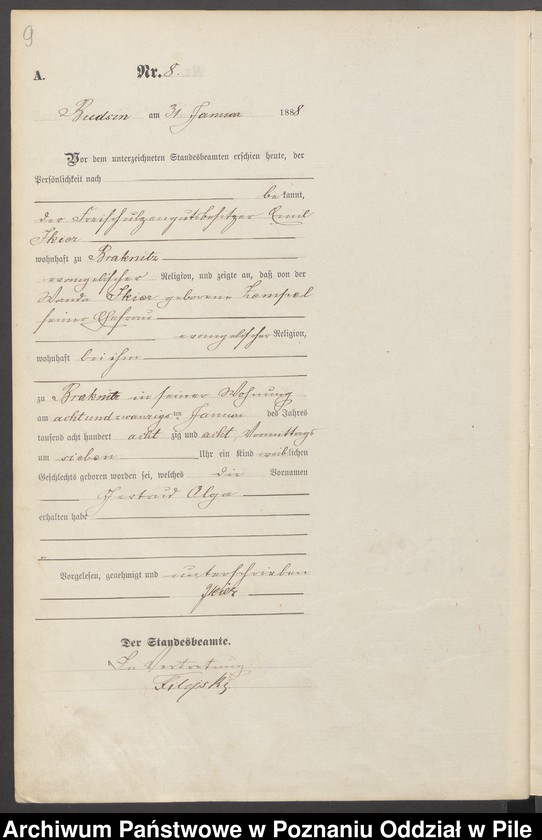 9
A.
Nr. 8.
Budsin am 31 Januar 1888
Vor dem unterzeichneten Standesbeamten erschien heute, der
Persönlichkeit nach
be kannt,
der Freischulzengutsbesitzer Emil
wohnhaft zu Braknitz
evangelischer Religion, und zeigte an, daß von der
Wanda geborene
seiner Ehefrau
evangelischer Religion,
wohnhaft bei ihm
zu Braknitz in seiner Wohnung
am achtundzwanzigsten Januar des Jahres
tausend acht hundert acht zig und acht, Vormittags
um sieben Uhr ein Kind weiblichen
Geschlechts geboren worden sei, welches die Vornamen
Gertrud Olga
erhalten habe
Vorgelesen, genehmigt und unterschrieben
Der Standesbeamte.
In Vertretung
Archiwum Państwowe w Poznaniu Oddział w Pile